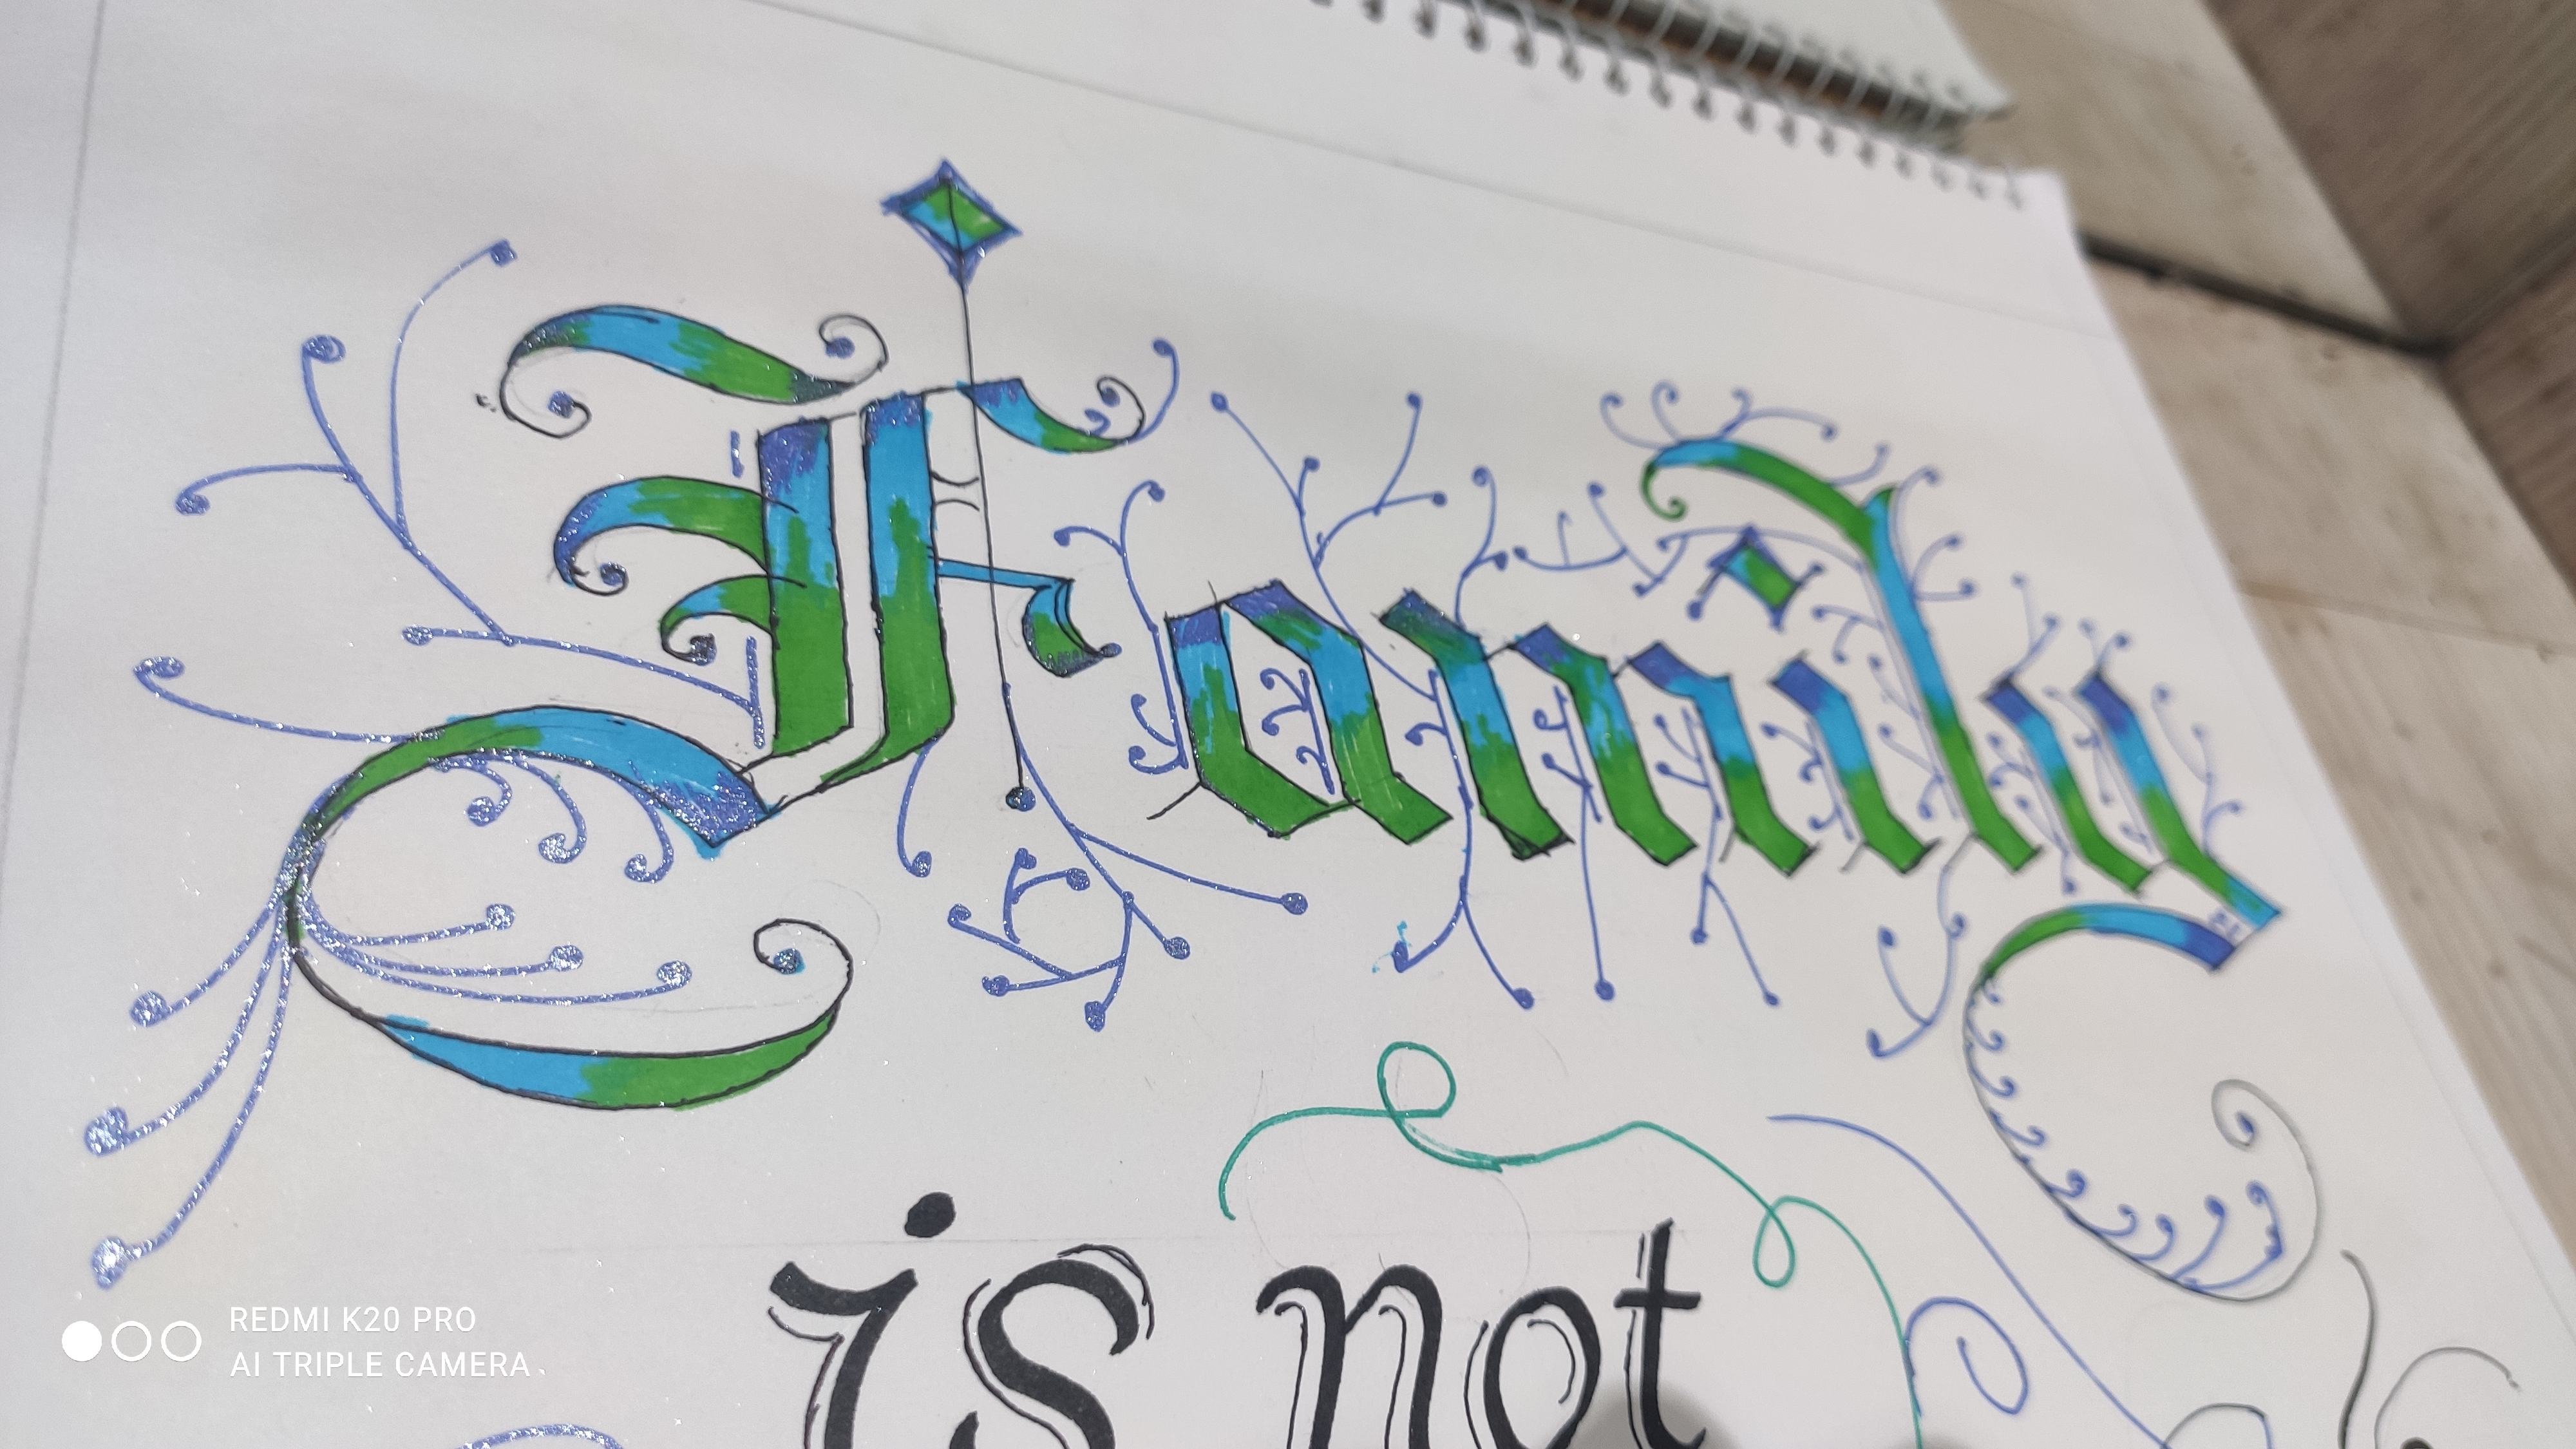 Family
is not
REDMI K20 PRO
AI TRIPLE CAMERA